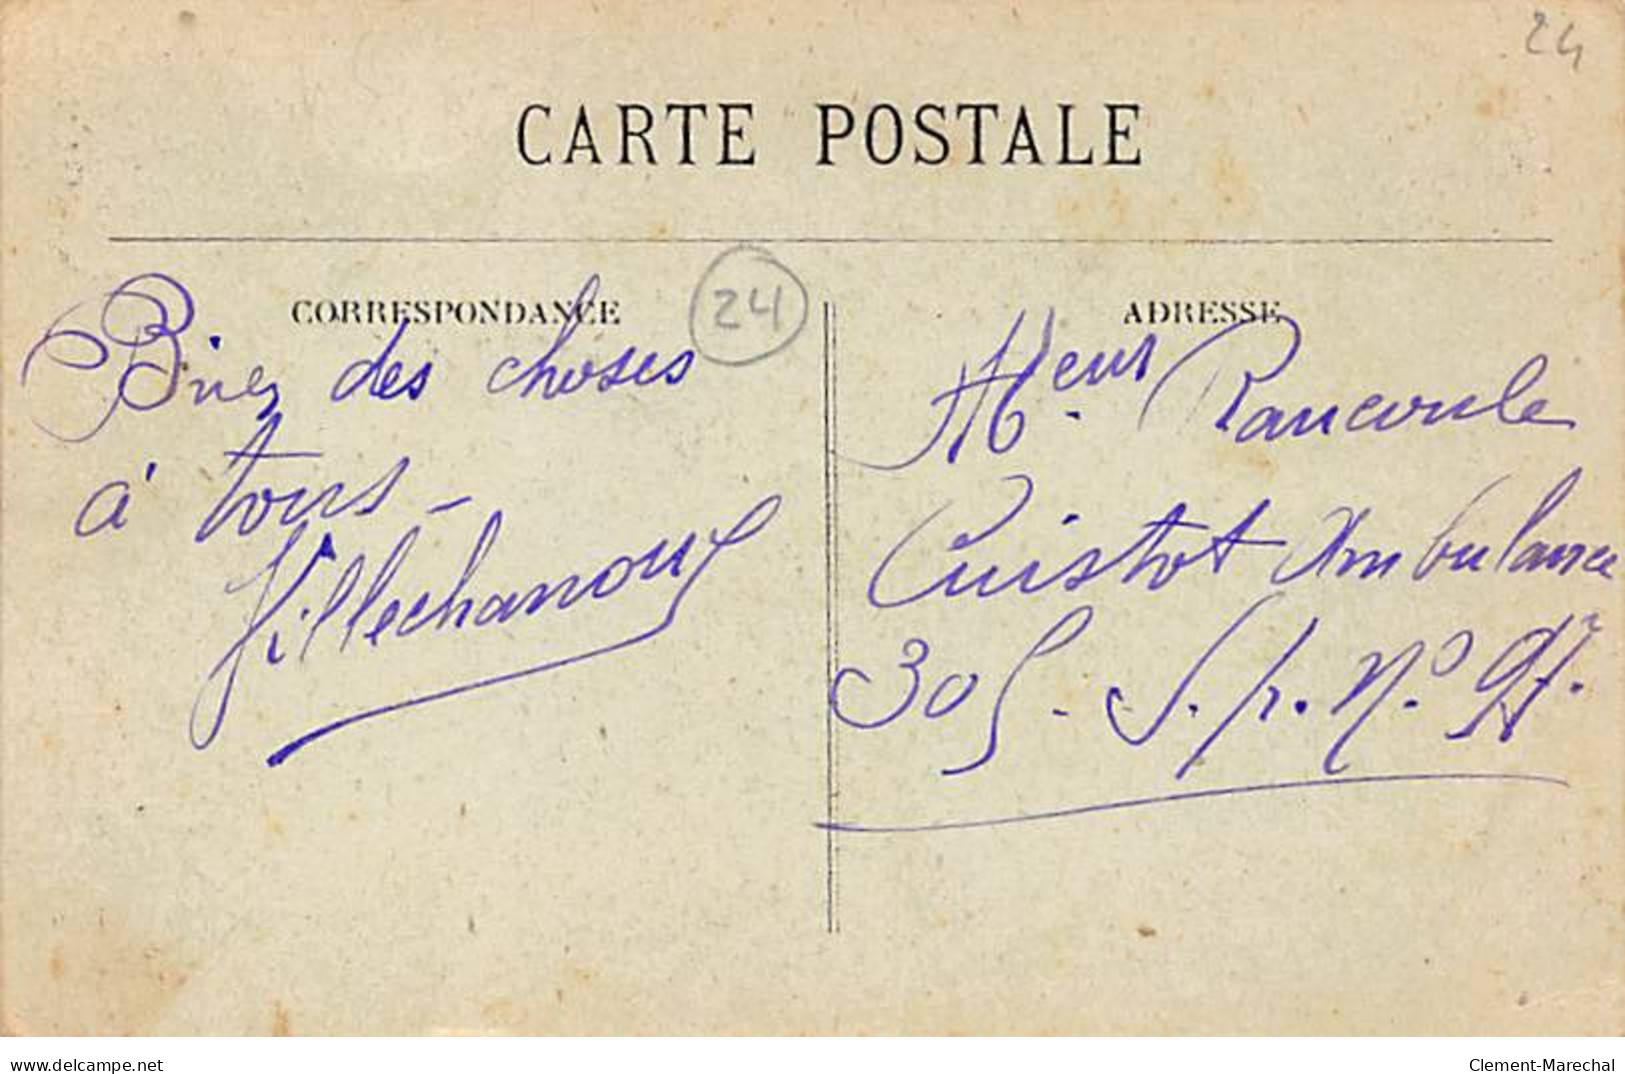 24
CARTE POSTALE
CORRESPONDANCE
24
ADRESSE
Bien des choses
à tous -
Villechanoux
Mr eur Rancoule
Cuistot Ambulance
305 - S. p. N° 97.
delcampe.net
Clement-Marechal